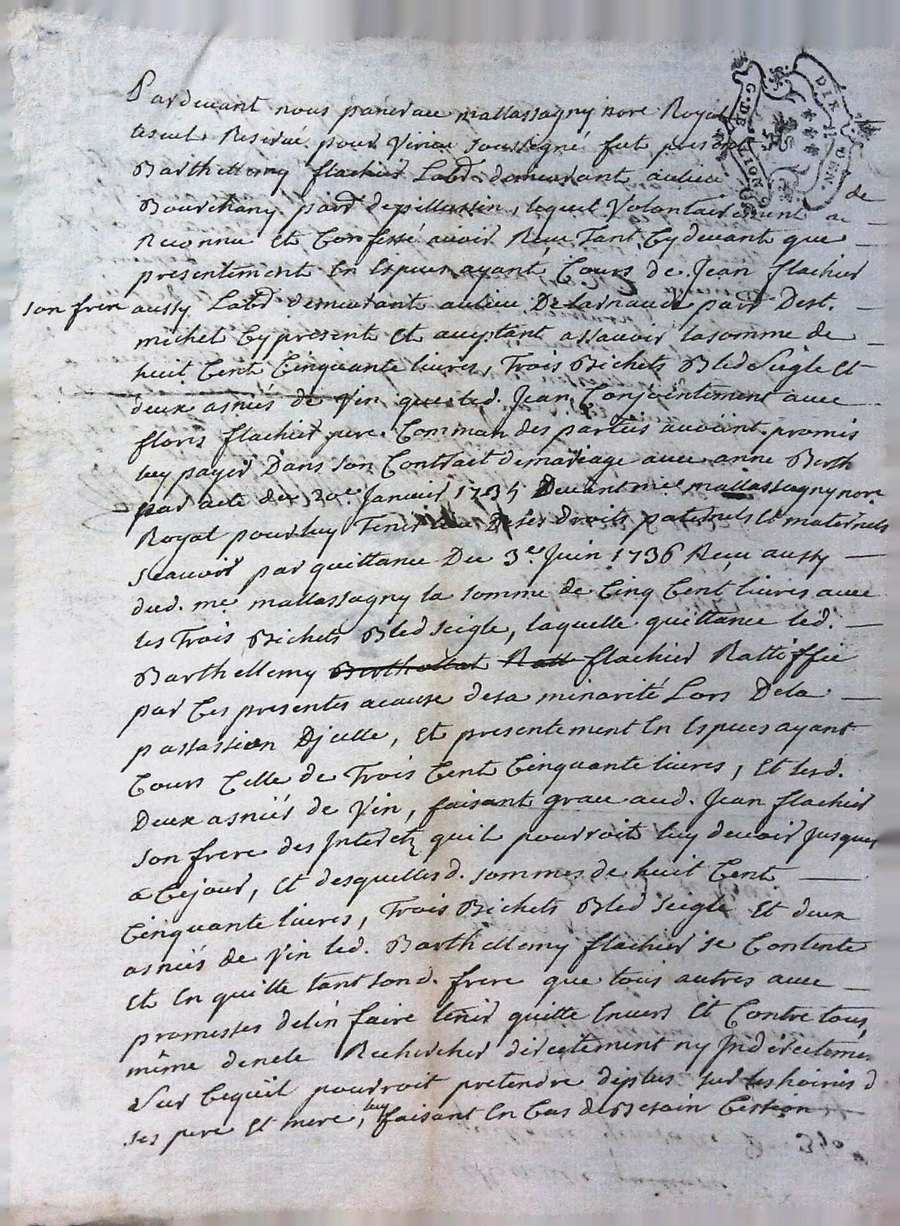 G. DE LION
DIX DEN.
Pardevant nous pancrace mallassagny nore Royal
soussigné fut present
Barthellemy flachier Labr. demeurant au lieu de
Bourchany parr. depellussin, lequel volontairement a
Reconnu Et Confessé avoir Reçu Tant Cy devant que
presentement En Especes ayant Cours de Jean flachier
son frere aussy Labr. demeurant au lieu De Larnaude parr. Dest.
michel Cy present Et acceptant assavoir la somme de
huit Cent Cinquante livres, Trois Bichets Bled Seigle Et
deux asnées de Vin que led. Jean Conjointement avec
floris flachier pere Commun des parties avoient promis
luy payer Dans son Contract demariage avec anne Berth
par acte du 20e Janvier 1735 Devant me. mallassagny nore
Royal pour luy Tenir lieu De ses droits paternels Et maternels
Scauoir par quittance Du 3e. Juin 1736 Reçu aussy
dud. me mallassagny la somme de Cinq Cent livres avec
les Trois Bichets Bled seigle, laquelle quittance led.
Barthellemy flachier Rattiffie
par Ces presentes acause desa minorité Lors Dela
passassion Djcelle, Et presentement En Especes ayant
Cours Celle de Trois Cent Cinquante livres, Et lesd.
Deux asnées de Vin, faisant grace aud. Jean flachier
son frere des Interetz quil pourroit luy devoir Jusques
a Cejour, Et desquelles d. sommes de huit Cent
Cinquante livres, Trois Bichets Bled Seigle Et deux
asnées de Vin led. Barthellemy flachier se Contente
Et En quitte tant sond. frere que tous autres avec
promesses delen faire tenir quitte Envers Et Contre tous,
même denele Rechercher directement ny Indirectement
Sur Cequil pourroit pretendre deplus sur les hoiries d
ses pere Et mere, luy faisant En Cas de Besoin Cession